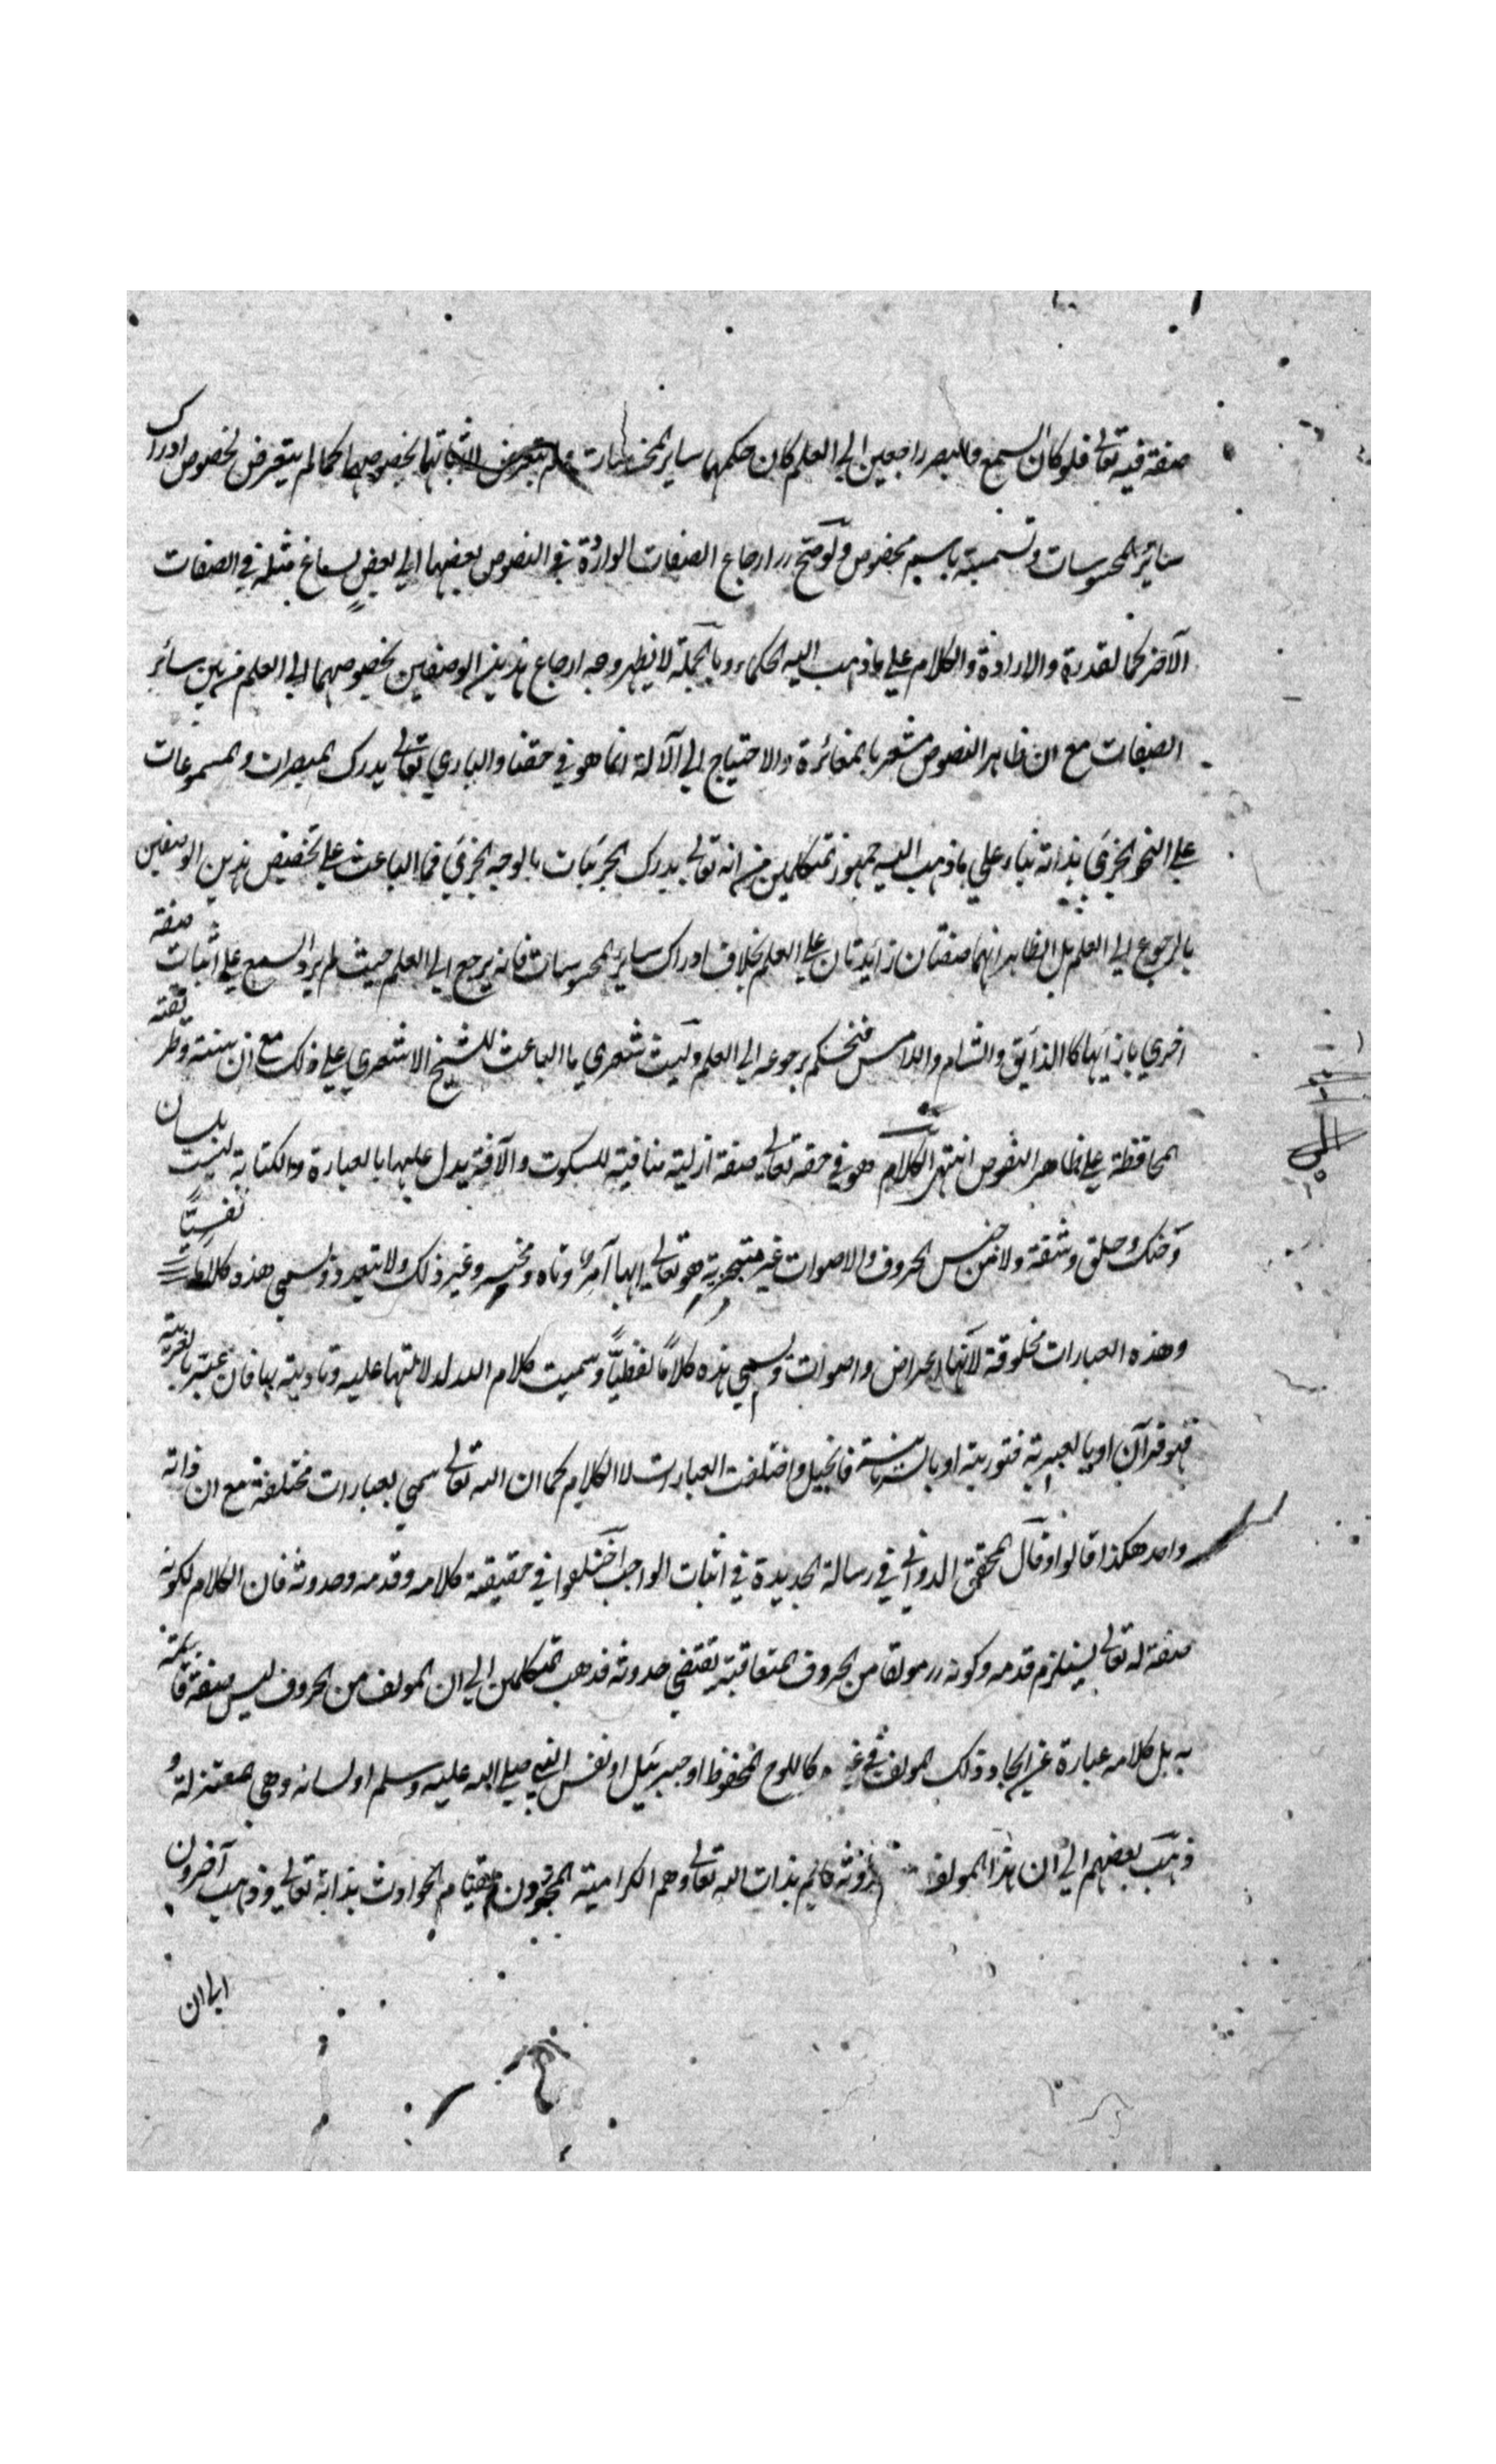 صفة فيه تعالى فلو كان السمع والبصر راجعين الى العلم كان حكمهما ساير ولم يتعرض لاثباتهما بخصوصهما كما لم يتعرض لخصوص ادراك
سائر المحسوسات وتسميته باسم مخصوص ولو صح ارجاع الصفات الواردة في النصوص بعضها الى بعض لساغ مثله في الصفات
الآخر كالقدرة والارادة والكلام على ما ذهب اليه الحكماء وبالجملة لا يظهر وجه ارجاع هذين الوصفين بخصوصهما الى العلم من بين سائر
الصفات مع ان ظاهر النصوص مشعر بالمغائرة والاحتياج الى الآلة انما هو في حقنا والباري تعالى يدرك المبصرات والمسموعات
على النحو الجزئي بذاته بناء على ما ذهب اليه جمهور المتكلمين من انه تعالى يدرك الجزئيات بالوجه الجزئي فما الباعث على تخصيص هذين الوصفين
بالرجوع الى العلم بل الظاهر انهما صفتان زائدتان على العلم بخلاف ادراك سائر المحسوسات فانه يرجع الى العلم حيث لم يرد السمع على اثبات صفة
اخرى بازائها كالذايق والشام واللامس فنحكم برجوعه الى العلم وليت شعري ما الباعث للشيخ الاشعري على ذلك مع ان سنته وطريقته
المحافظة على ظاهر النصوص انتهى الكلام وهو في حقه تعالى صفة ازلية منافية للسكوت والآفة يدل عليها بالعبارة والكتابة ليست بلسان
وحنك وحلق وشفة ولا من جنس الحروف والاصوات غير متجزية هو تعالى بها آمر وناه ومخبر وغير ذلك ولا تتعدد وتسمى هذه كلاما نفسيًا
وهذه العبارات مخلوقة لانها اعراض واصوات وتسمى هذه كلامًا لفظيًا وسميت كلام الله لدلالتها عليه وتاديته بها فان عبر بالعربية
فهو قرآن او بالعبرية فتورية او بالسريانية فانجيل واختلفت العبارات لا الكلام كما ان الله تعالى سمي بعبارات مختلفة مع ان ذاته
واحد هكذا قالوا وقال المحقق الدواني في رسالة الجديدة في اثبات الواجب اختلفوا في حقيقة كلامه وقدمه وحدوثه فان الكلام لكونه
صفة له تعالى يستلزم قدمه وكونه مولفا من الحروف المتعاقبة يقتضي حدوثه فذهب المتكلمين الى ان المولف من الحروف ليس صفة قائمة
به بل كلامه عبارة عن ايجاد ذلك المولف في غيره كاللوح المحفوظ او جبرئيل او نفس النبي صلى الله عليه وسلم او لسانه وهي المعتزلة و
ذهب بعضهم الى ان هذا المولف قائم بذات الله تعالى وهم الكرامية المجوزون لقيام الحوادث بذاته تعالى وذهب آخرون
الى ان